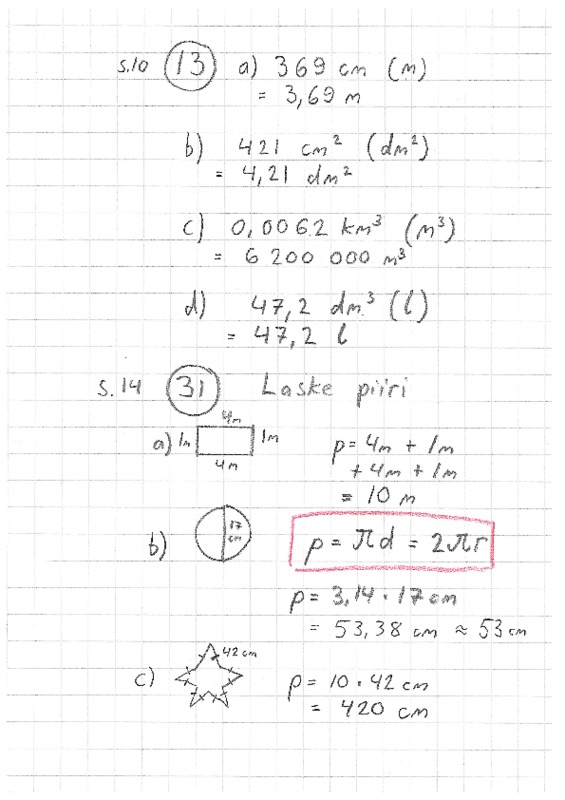 s.10 13 a) 369 cm (m)
= 3,69 m
b) 421 cm² (dm²)
= 4,21 dm²
c) 0,0062 km³ (m³)
= 6 200 000 m³
d) 47,2 dm³ (l)
= 47,2 l
s. 14 31 Laske piiri
4m
a) 1m 1m p = 4m + 1m
4m + 4m + 1m
= 10 m
b) 17 cm p = πd = 2πr
p = 3,14 · 17 cm
= 53,38 cm ≈ 53 cm
c) 42 cm p = 10 · 42 cm
= 420 cm